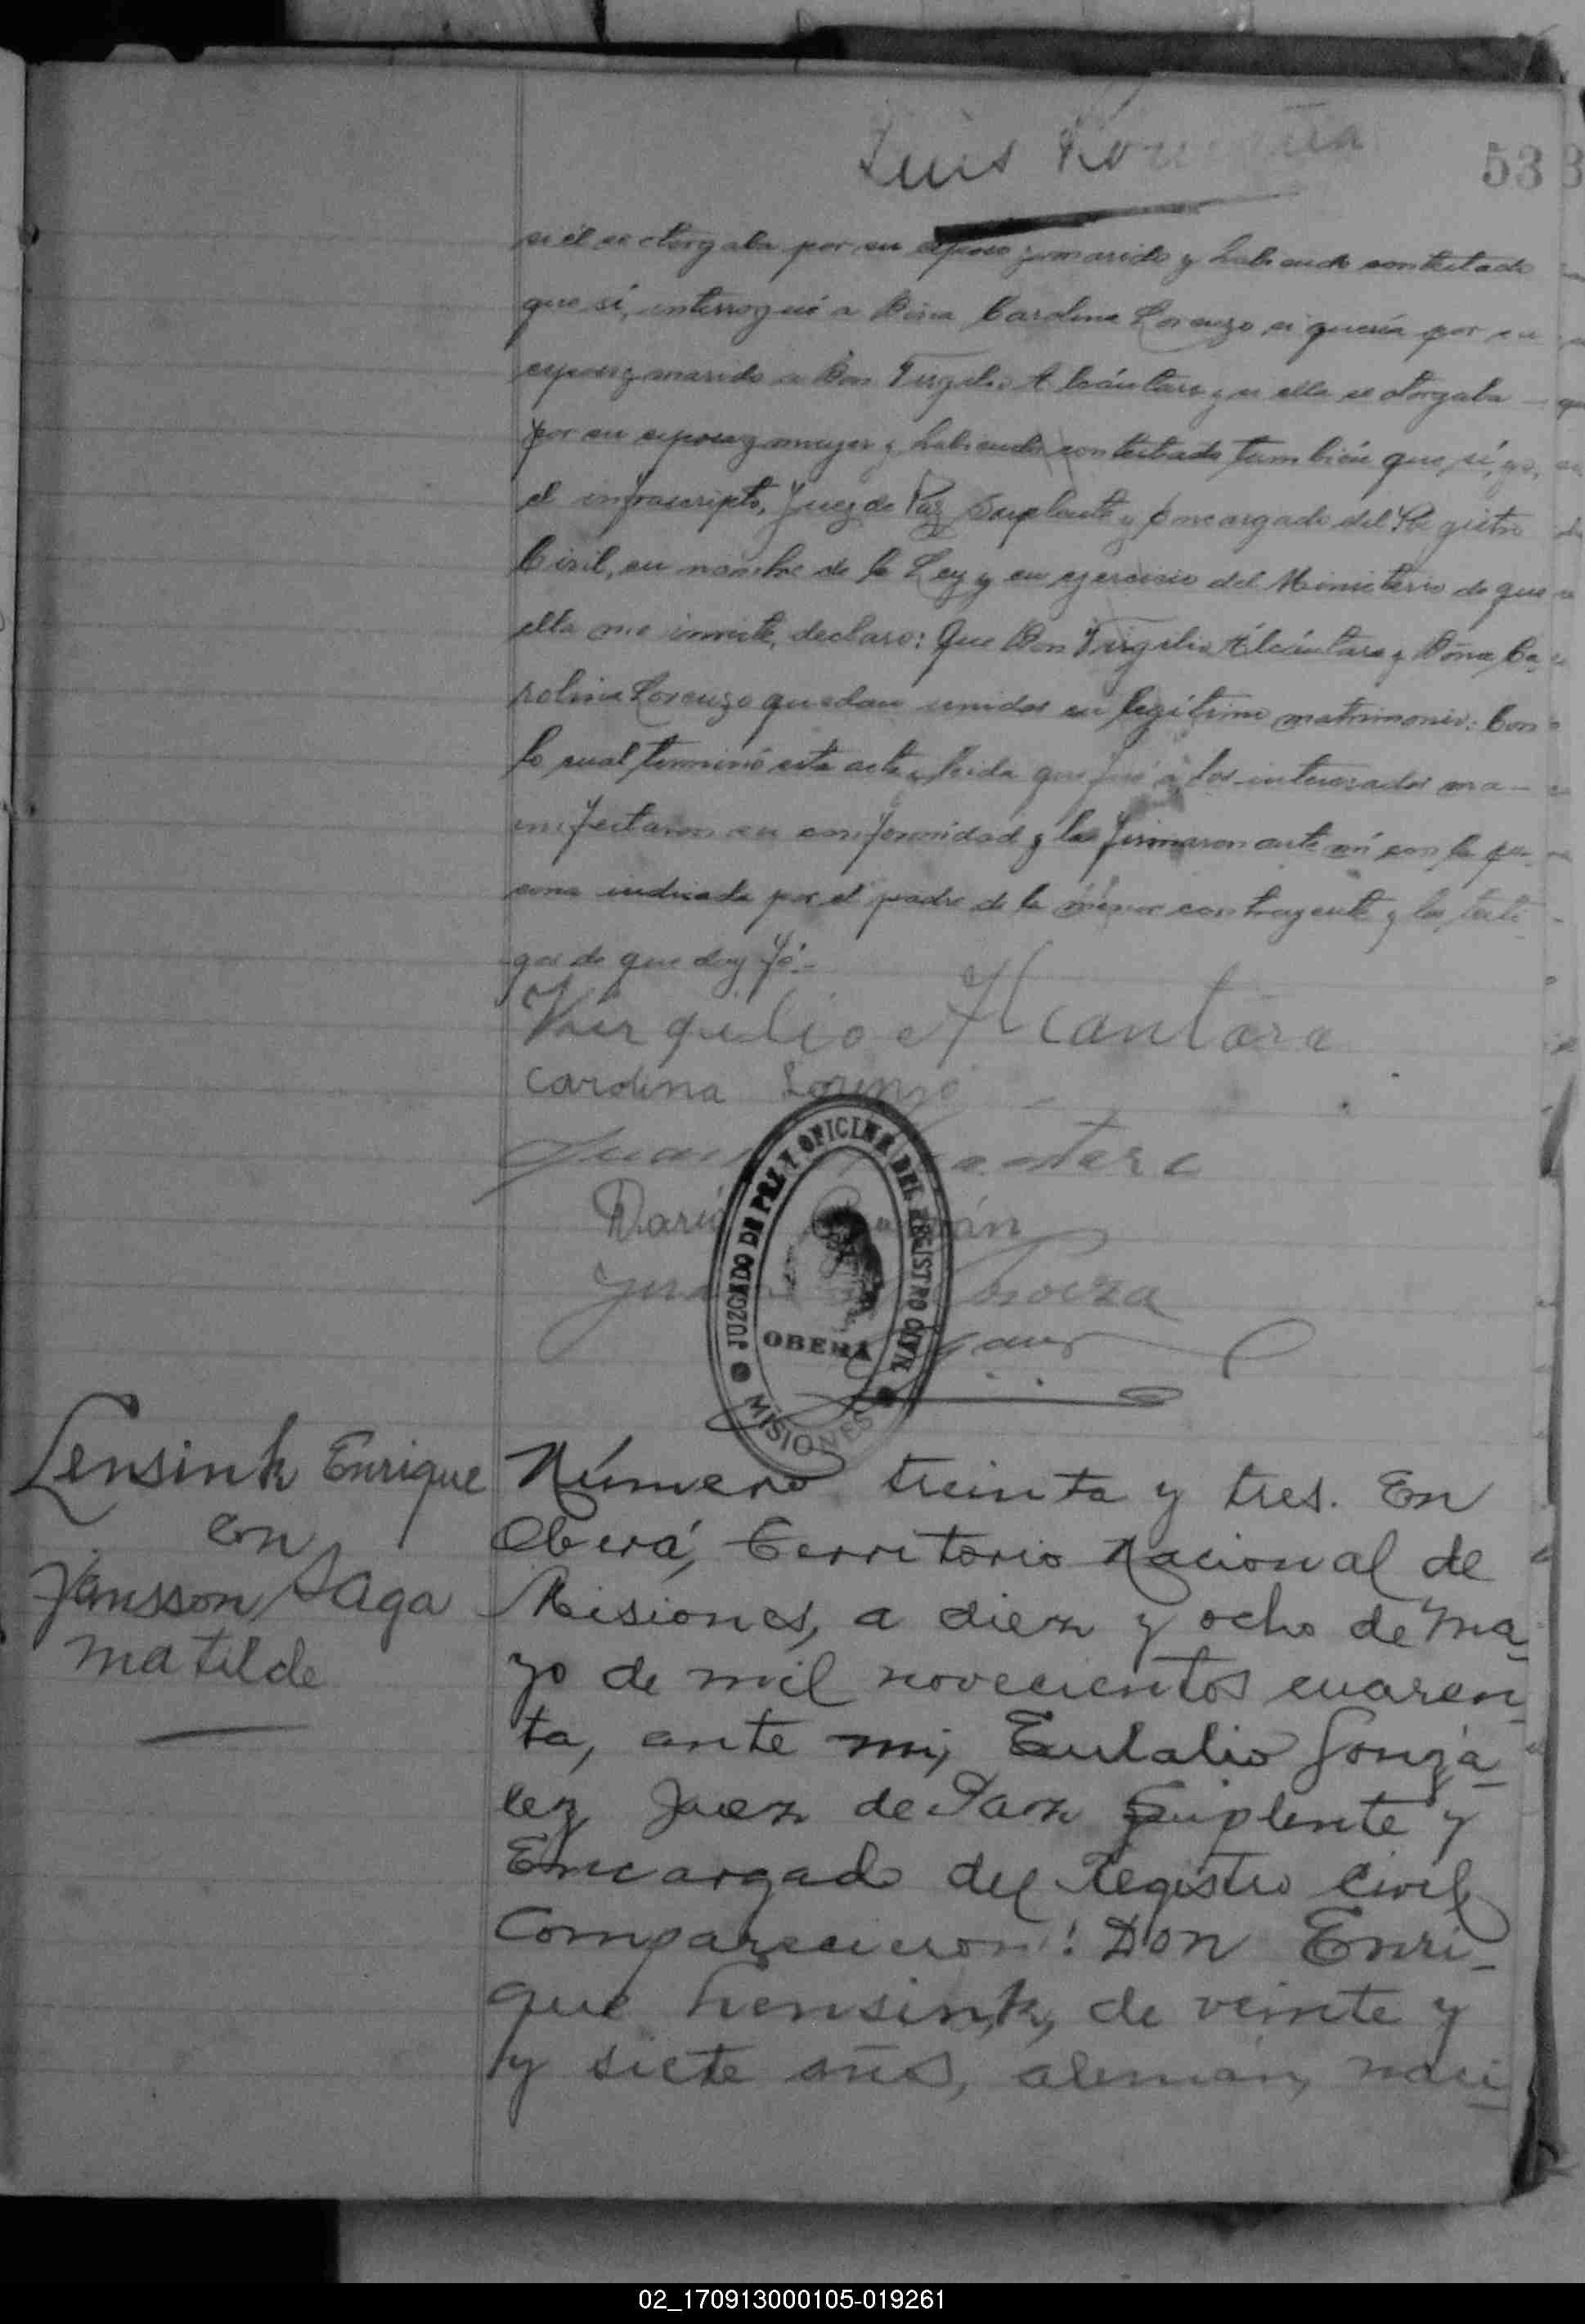 Luis
53
si él se otorgaba por su esposo y marido y habiendo contestado
que sí, interrogué a Doña Carolina Lorenzo si quería por su
esposo y marido a Don Virgilio Alcántara y si ella se otorgaba
por su esposa y mujer y habiendo contestado también que sí, yo,
el infrascripto, Juez de Paz Suplente y Encargado del Registro
Civil, en nombre de la Ley y en ejercicio del Ministerio de que
ella me inviste, declaro: Que Don Virgilio Alcántara y Doña Ca-
rolina Lorenzo quedan unidos en legítimo matrimonio: Con
lo cual terminó esta acta y leida que fué a los interesados ma-
nifestaron su conformidad y la firmaron ante mí con la per-
sona indicada por el padre de la menor contrayente y los testi-
gos de que doy fé.-
Virgilio Alcantara
Carolina Lorenzo
JUZGADO DE PAZ Y OFICINA DEL REGISTRO CIVIL
OBERA
MISIONES
Lensink Enrique
con
Jansson Saga
Matilde
Número treinta y tres. En
Oberá, Territorio Nacional de
Misiones, a diez y ocho de Ma-
yo de mil novecientos cuaren-
ta, ante mi, Eulalio Gonzá-
lez Juez de Paz Suplente y
Encargado del Registro Civil
Comparecieron: Don Enri-
que Lensink, de veinte y
y siete años, alemán, naci-
02_170913000105-019261